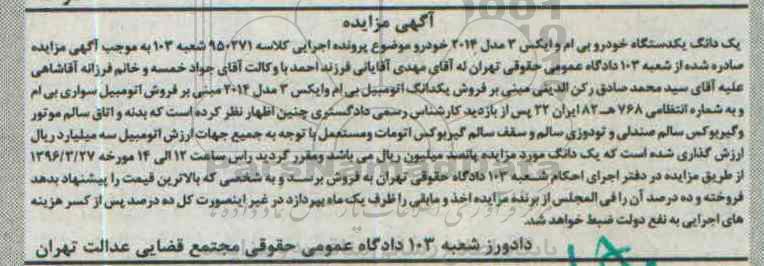 آگهی مزایده
یک دانگ یکدستگاه خودرو بی ام و ایکس ۳ مدل ۲۰۱۴ خودرو موضوع پرونده اجرایی کلاسه ۹۵۰۲۷۱ شعبه ۱۰۳ به موجب آگهی مزایده
صادره شده از شعبه ۱۰۳ دادگاه عمومی حقوقی تهران له آقای مهدی آقایانی فرزند احمد با وکالت آقای جواد خمسه و خانم فرزانه آقاشاهی
علیه آقای سید محمد صادق رکن الدینی مبنی بر فروش یکدانگ اتومبیل بی ام وایکس ۳ مدل ۲۰۱۴ مبنی بر فروش اتومبیل سواری بی ام
و به شماره انتظامی ۷۶۸ هـ ۸۲ ایران ۲۲ پس از بازدید کارشناس رسمی دادگستری چنین اظهار نظر کرده است که بدنه و اتاق سالم موتور
وگیربوکس سالم صندلی و تودوزی سالم و سقف سالم گیربوکس اتومات ومستعمل با توجه به جمیع جهات ارزش اتومبیل سه میلیارد ریال
ارزش گذاری شده است که یک دانگ مورد مزایده پانصد میلیون ریال می باشد ومقرر گردید راس ساعت ۱۲ الی ۱۴ مورخه ۱۳۹۶/۳/۲۷
از طریق مزایده در دفتر اجرای احکام شعبه ۱۰۳ دادگاه حقوقی تهران به فروش برسد و به شخصی که بالاترین قیمت را پیشنهاد بدهد
فروخته و ده درصد آن را فی المجلس از برنده مزایده اخذ و مابقی را ظرف یک ماه بپردازد در غیر اینصورت کل ده درصد پس از کسر هزینه
های اجرایی به نفع دولت ضبط خواهد شد.
دادورز شعبه ۱۰۳ دادگاه عمومی حقوقی مجتمع قضایی عدالت تهران